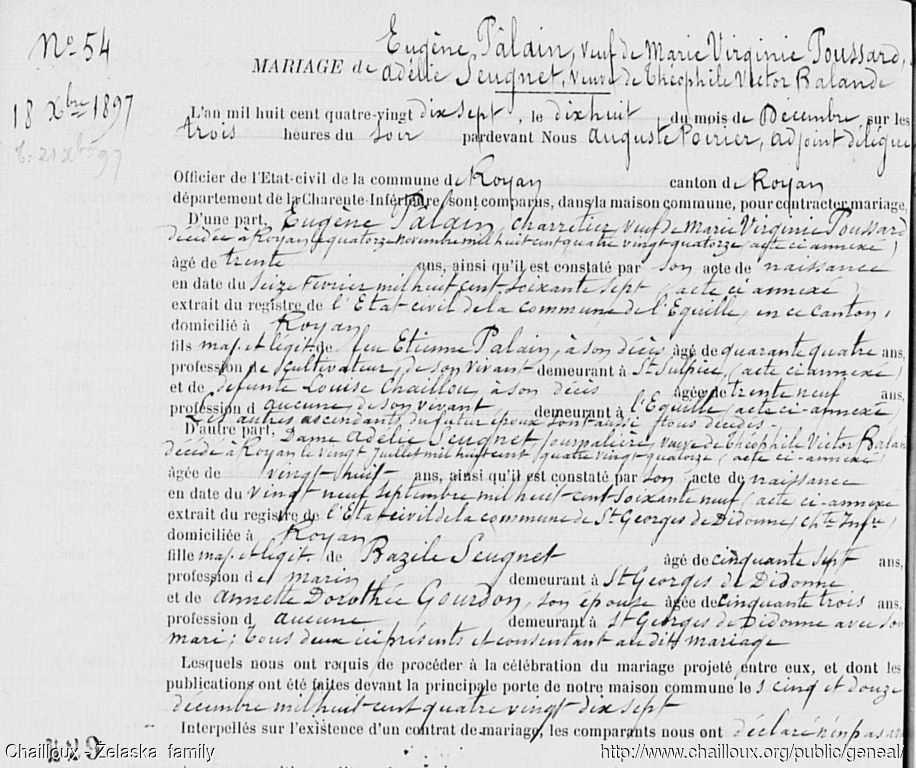 No 54
Eugène Pâlain, veuf de Marie Virginie Poussard,
MARIAGE de Adélie Seugnet, veuve de Théophile Victor Balande
18 Xbre 1897
21 Xbre 97
L'an mil huit cent quatre-vingt dix sept, le dix huit du mois de Décembre, sur les
trois heures du soir pardevant Nous Auguste Poirier, adjoint délégué
Officier de l'Etat-civil de la commune de Royan canton de Royan
département de la Charente-Inférieure, sont comparus, dans la maison commune, pour contracter mariage,
D'une part, Eugène Pâlain, charretier, veuf de Marie Virginie Poussard
décédée à Royan le quatorze novembre mil huit cent quatre vingt quatorze (acte ci annexé)
âgé de trente ans, ainsi qu'il est constaté par son acte de naissance
en date du Seize Février mil huit cent soixante sept (acte ci annexé)
extrait du registre de l'Etat civil de la commune de l'Eguille, en ce canton,
domicilié à Royan
fils maj. et légit. de feu Etienne Palain, à son décès âgé de quarante quatre ans,
profession de cultivateur, de son vivant demeurant à St Sulpice, (acte ci annexé)
et de défunte Louise Chaillou, à son décès âgée de trente neuf ans,
profession d aucune, de son vivant demeurant à l'Eguille (acte ci-annexé)
Les autres ascendants du futur époux sont aussi tous décédés.
D'autre part, Dame Adélie Seugnet, journalière, veuve de Théophile Victor Balan
décédé à Royan le vingt Juillet mil huit cent quatre vingt quatorze (acte ci-annexé)
âgée de vingt huit ans, ainsi qu'il est constaté par son acte de naissance
en date du vingt neuf septembre mil huit cent soixante neuf (acte ci-annexé
extrait du registre de l'Etat civil de la commune de St Georges de Didonne (Chte Infre)
domiciliée à Royan
fille maj. et légit. de Bazile Seugnet âgé de cinquante sept ans,
profession de marin demeurant à St Georges de Didonne
et de Annette Dorothée Gourdon, son épouse âgée de cinquante trois ans,
profession d aucune demeurant à St Georges de Didonne avec son
mari; tous deux ici présents et consentant au dit mariage
Lesquels nous ont requis de procéder à la célébration du mariage projeté entre eux, et dont les
publications ont été faites devant la principale porte de notre maison commune les cinq et douze
décembre mil huit cent quatre vingt dix sept
Interpellés sur l'existence d'un contrat de mariage, les comparants nous ont déclaré n'en pas
229
Chailloux - Zelaska family http://www.chailloux.org/public/geneal/